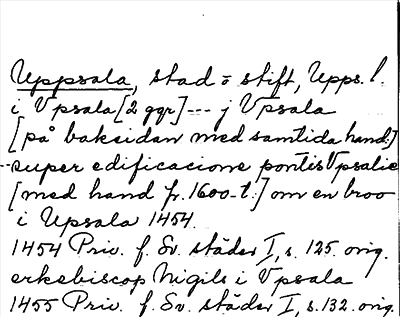 Uppsala, stad o stift, Upps. l.
i Vpsala [2 ggr] --- j Vpsala
[på baksidan med samtida hand:]
--super edificacione pontis Vpsalie
[med hand fr. 1600-t.] om en broo
i Upsala 1454.
1454 Priv. f. Sv. städer I, s. 125. orig.
erkebiscop Nigils i Vpsala
1455 Priv. f. Sv. städer I, s. 132. orig.